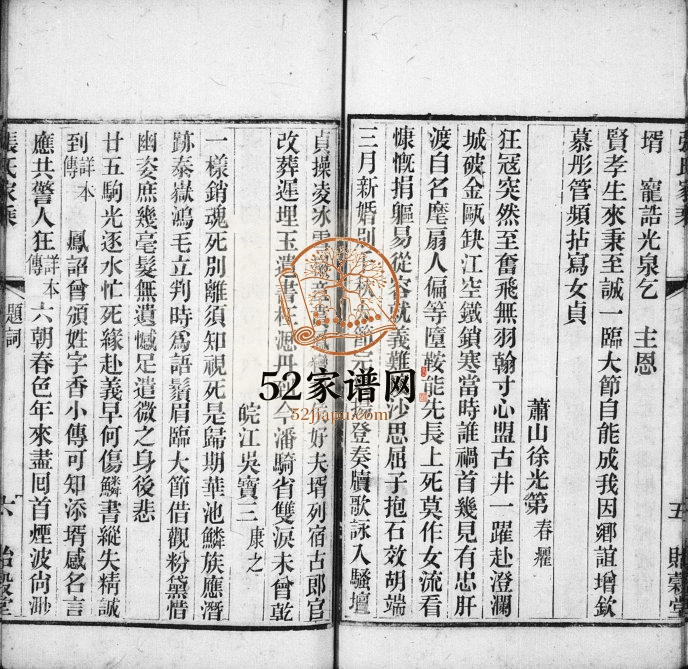 張氏家乘
五
貽穀堂
壻 寵誥光泉乞 主恩
賢孝生來秉至誠一臨大節自能成我因鄉誼增欽
慕彤管頻拈寫女貞
蕭山徐光第 春
狂冦突然至奮飛無羽翰寸心盟古井一躍赴澄瀾
城破金甌缺江空鐵鎖寒當時誰禍首幾見有忠肝
渡自名麾扇人偏等墮鞍能先長上死莫作女流看
慷慨捐軀易從容就義難沙思屈子抱石效胡端
三月新婚別秋大節登奏牘歌詠入騷壇
貞操凌冰好夫壻列宿古郎官
改葬遲埋玉遺書在今潘騎省雙淚未曾乾
皖江吳寶三 康之
一樣銷魂死別離須知視死是歸期華池鱗族應潛
跡泰嶽鴻毛立判時爲語鬚眉臨大節借觀粉黛惜
幽姿庶幾毫髮無遺憾足遣微之身後悲
廿五駒光逐水忙死緣赴義早何傷鱗書縱失精誠
到詳本傳 鳳詔曾頒姓字香小傳可知添壻感名言
應共警人狂詳本傳 六朝春色年來盡囘首煙波尚渺
張氏家乘
題詞
六
貽穀堂
52家谱网
52jiapu.com